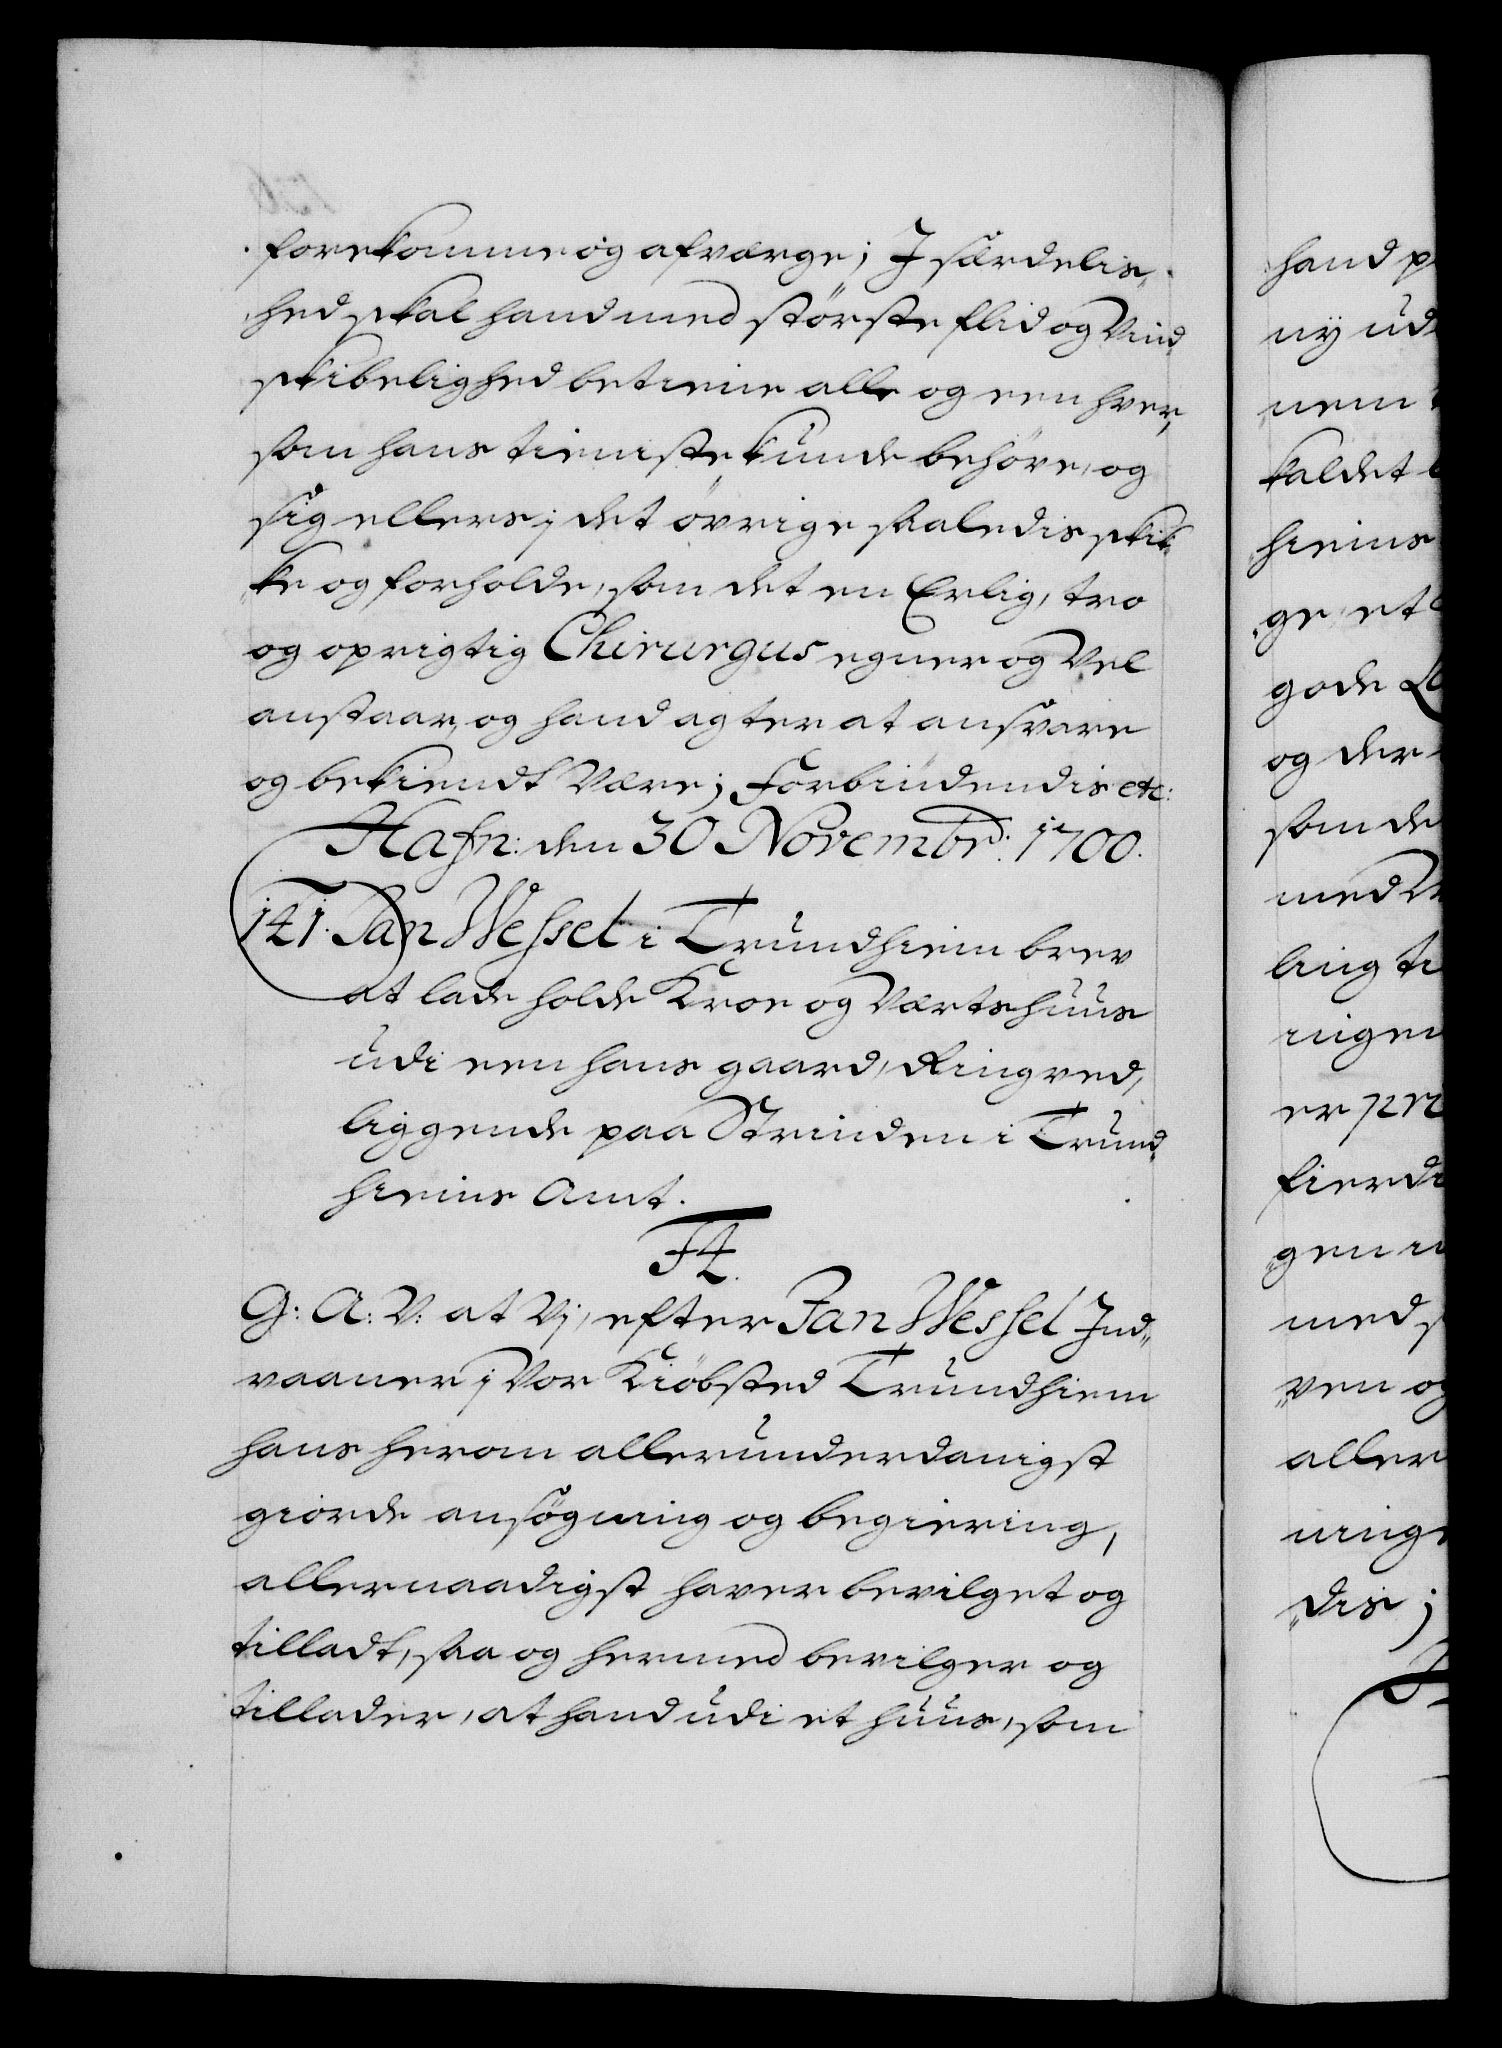 forekomme og afværge; J særdelis„
hed skal hand med störste flid og Vind„
skibelighed betiene alle og een hver,
som hans tieniste kunde behöve, og
sig ellers i det övrige saaledis skik„
ke og forholde, som det en Erlig, tro
og oprigtig Chirurgus egner og Vel
anstaar, og hand agter at ansvare
og bekiendt Være; Forbiudendis etc:
Hafn: den 30 Novembr: 1700.
141. Jan Wessel i Trundhiem brev
at lade holde Kroe og Værtshuus
udi een hans gaard, Ringved,
liggende paa Strinden i Trund„
hiems Amt.
F4.
G: A: V: at Vj, efter Jan Wessel Jnd„
vaaner i Vor Kiöbsted Trundhiem
hans herom allerunderdanigst
giorde ansögning og begiering,
allernaadigst haver bevilget og
tilladt, saa og hermed bevilger og
tillader, at hand udi et huus, som
hand p
ny ud
nem
kaldet
hiems
ge, et
gode
og der
som de
med
ling ti
ringen
er pr
fierd
gen
med s
ven og
aller
ninge
dis;